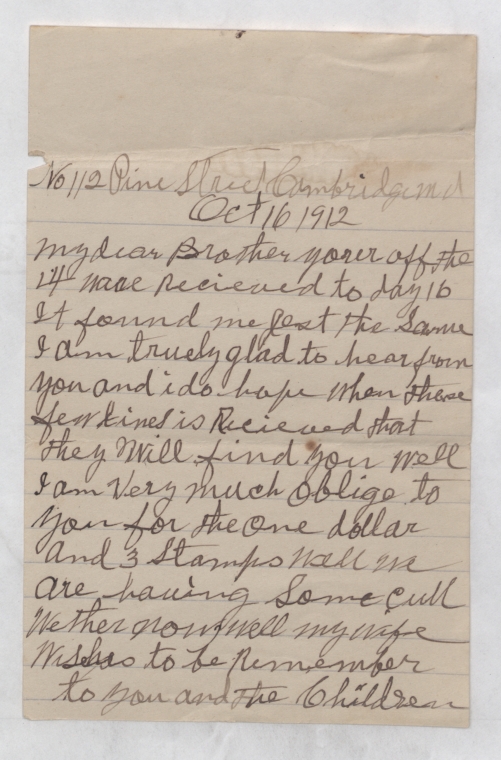 No 112 Pine Street Cambridge md
Oct 16 1912
my dear Brother yorer off the
14 ware Recieved to day 16
It found me gest the Same
I am truely glad to hear from
you and i do hope when these
few Lines is Recieved that
they Will find you well
I am Very much oblige to
you for the One dollar
and 3 Stamps Well we
are having Some Cull
Wether now well my wife
Wishes to be Remember
to you and the Children